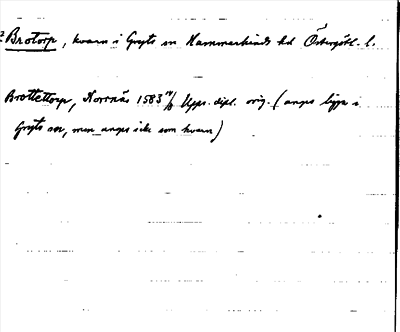 ? Brotorp, kvarn i Gryts sn Hammarkinds hd Östergötl. l.
Brottettorp, Norrnäs 1583 Upps. dipl. orig. (anges ligga i
Gryts sn, men anges icke som kvarn)